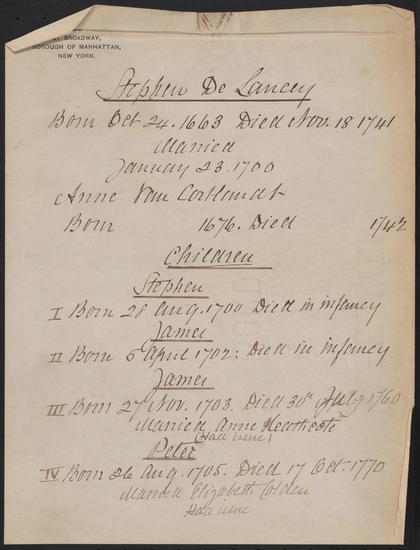 BROADWAY,
BOROUGH OF MANHATTAN,
NEW YORK.
Stephen De Lancey
Born Oct 24. 1663 Died Nov. 18 1741
Married
January 23. 1700
Anne Van Cortlandt
Born 1676. Died 1742
Children
Stephen
I Born 28 Aug. 1700 Died in infancy
James
II Born 5 April 1702: Died in infancy
James
III Born 27 Nov. 1703. Died 30th July 1760
Married Anne Heathcote
(Had issue)
Peter
IV Born 26 Aug. 1705. Died 17 Oct. 1770
Married Elizabeth Colden
Had issue